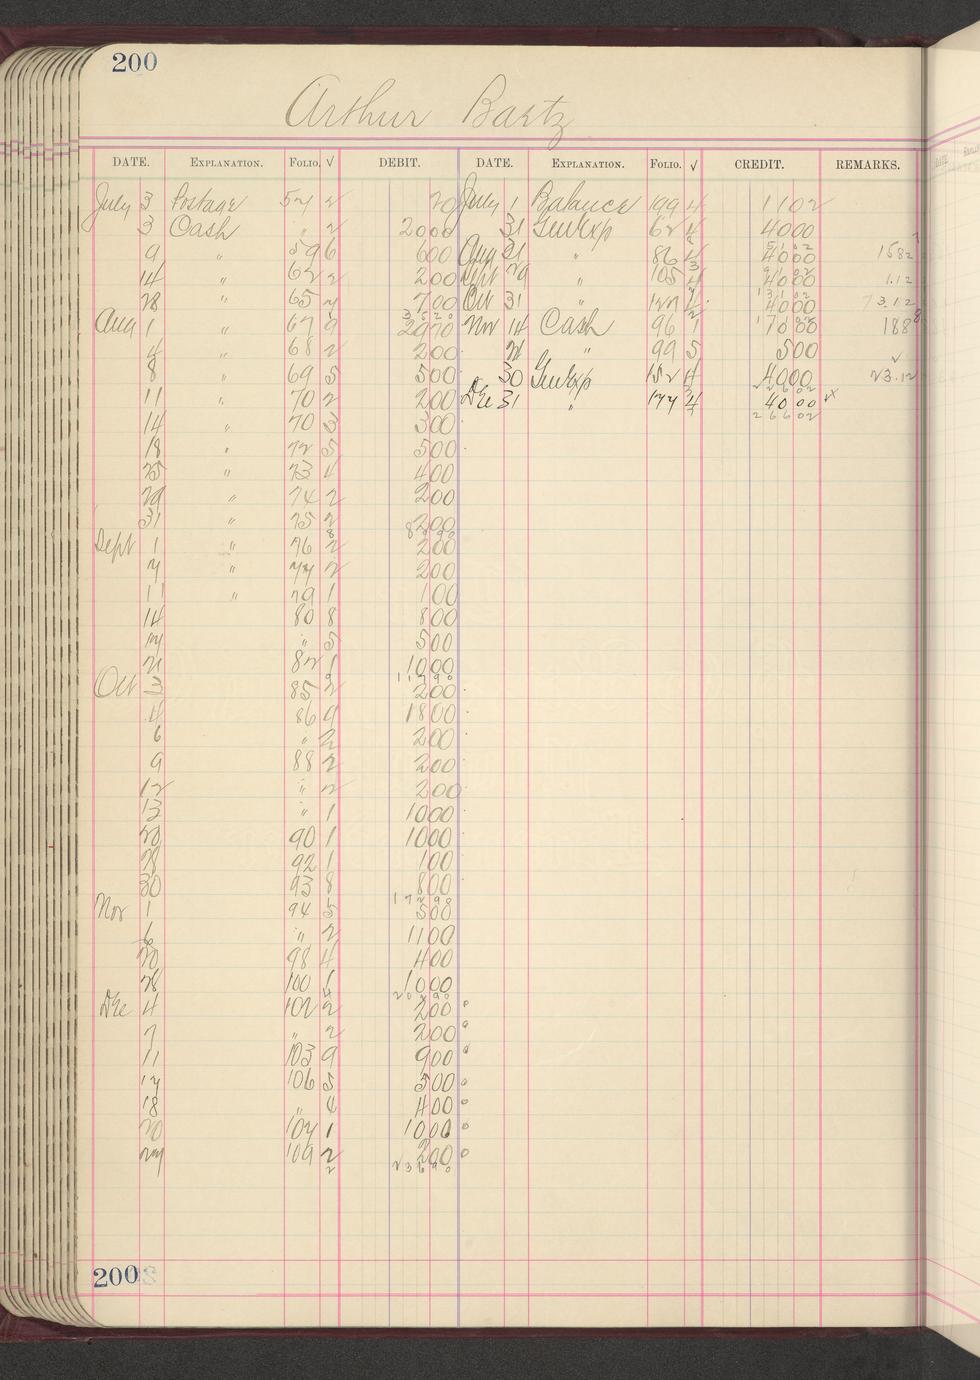 200
Arthur Bartz
DATE. EXPLANATION. FOLIO. √ DEBIT. DATE. EXPLANATION. FOLIO. √ CREDIT. REMARKS.
July 3 Postage 57 2 20 July 1 Balance 199 4 1102
3 Cash " 2 2000 31 GenExp 62 4 4000
9 " 59 6 600 Aug 31 " 86 4 4000 1582
14 " 62 2 200 Sept 29 " 105 4 4000 1.12
28 " 65 7 700 Oct 31 " 127 4 4000 73.12
Aug 1 " 67 9 2070 Nov 14 Cash 96 1 1700 188
4 " 68 2 200 21 " 99 5 500
8 " 69 5 500 30 GenExp 152 4 4000 23.12
11 " 70 2 200 Dec 31 " 177 4 4000
14 " 70 3 300 26602
18 " 72 5 500
25 " 73 4 400
29 " 74 2 200
31 " 75 2 200
Sept 1 " 76 2 200
7 " 77 2 200
11 " 79 1 100
14 80 8 800
17 " 5 500
21 82 1 1000
11790
Oct 3 85 2 200
4 86 9 1800
6 " 2 200
9 88 2 200
12 " 2 200
13 " 1 1000
20 90 1 1000
28 92 1 100
30 93 8 800
17290
Nov 1 94 5 500
6 " 2 1100
20 98 4 400
28 100 1 1000
20490
Dec 4 102 2 200
7 " 2 200
11 103 9 900
17 106 5 500
18 " 4 400
20 107 1 1000
27 109 2 200
2 23690
200